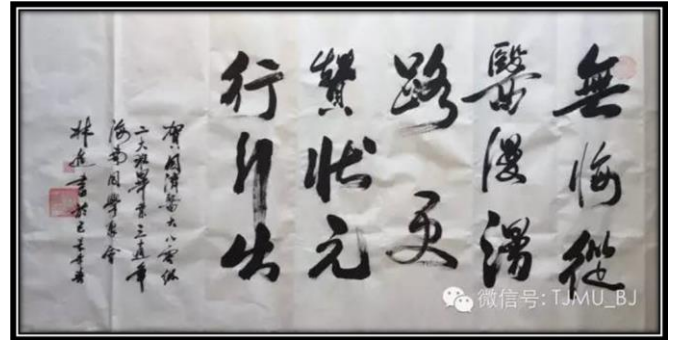 無悔從
醫漫漫
路更
贊狀元
行行出
賀同濟醫大八零级
二大班畢業三年
海南同學聚会
林書於
微信号: TJMU_BJ